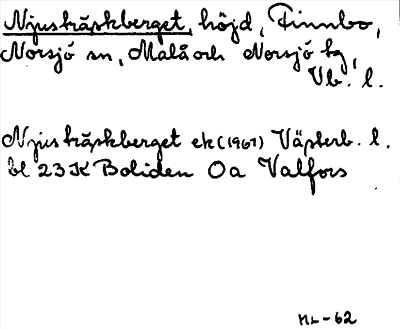 Njusträskberget, höjd, Finnbo,
Norsjö sn, Malå och Norsjö tg,
Vb. l.
Njusträskberget ek (1967) Västerb. l.
bl 23K Boliden 0a Valfors
ML-62